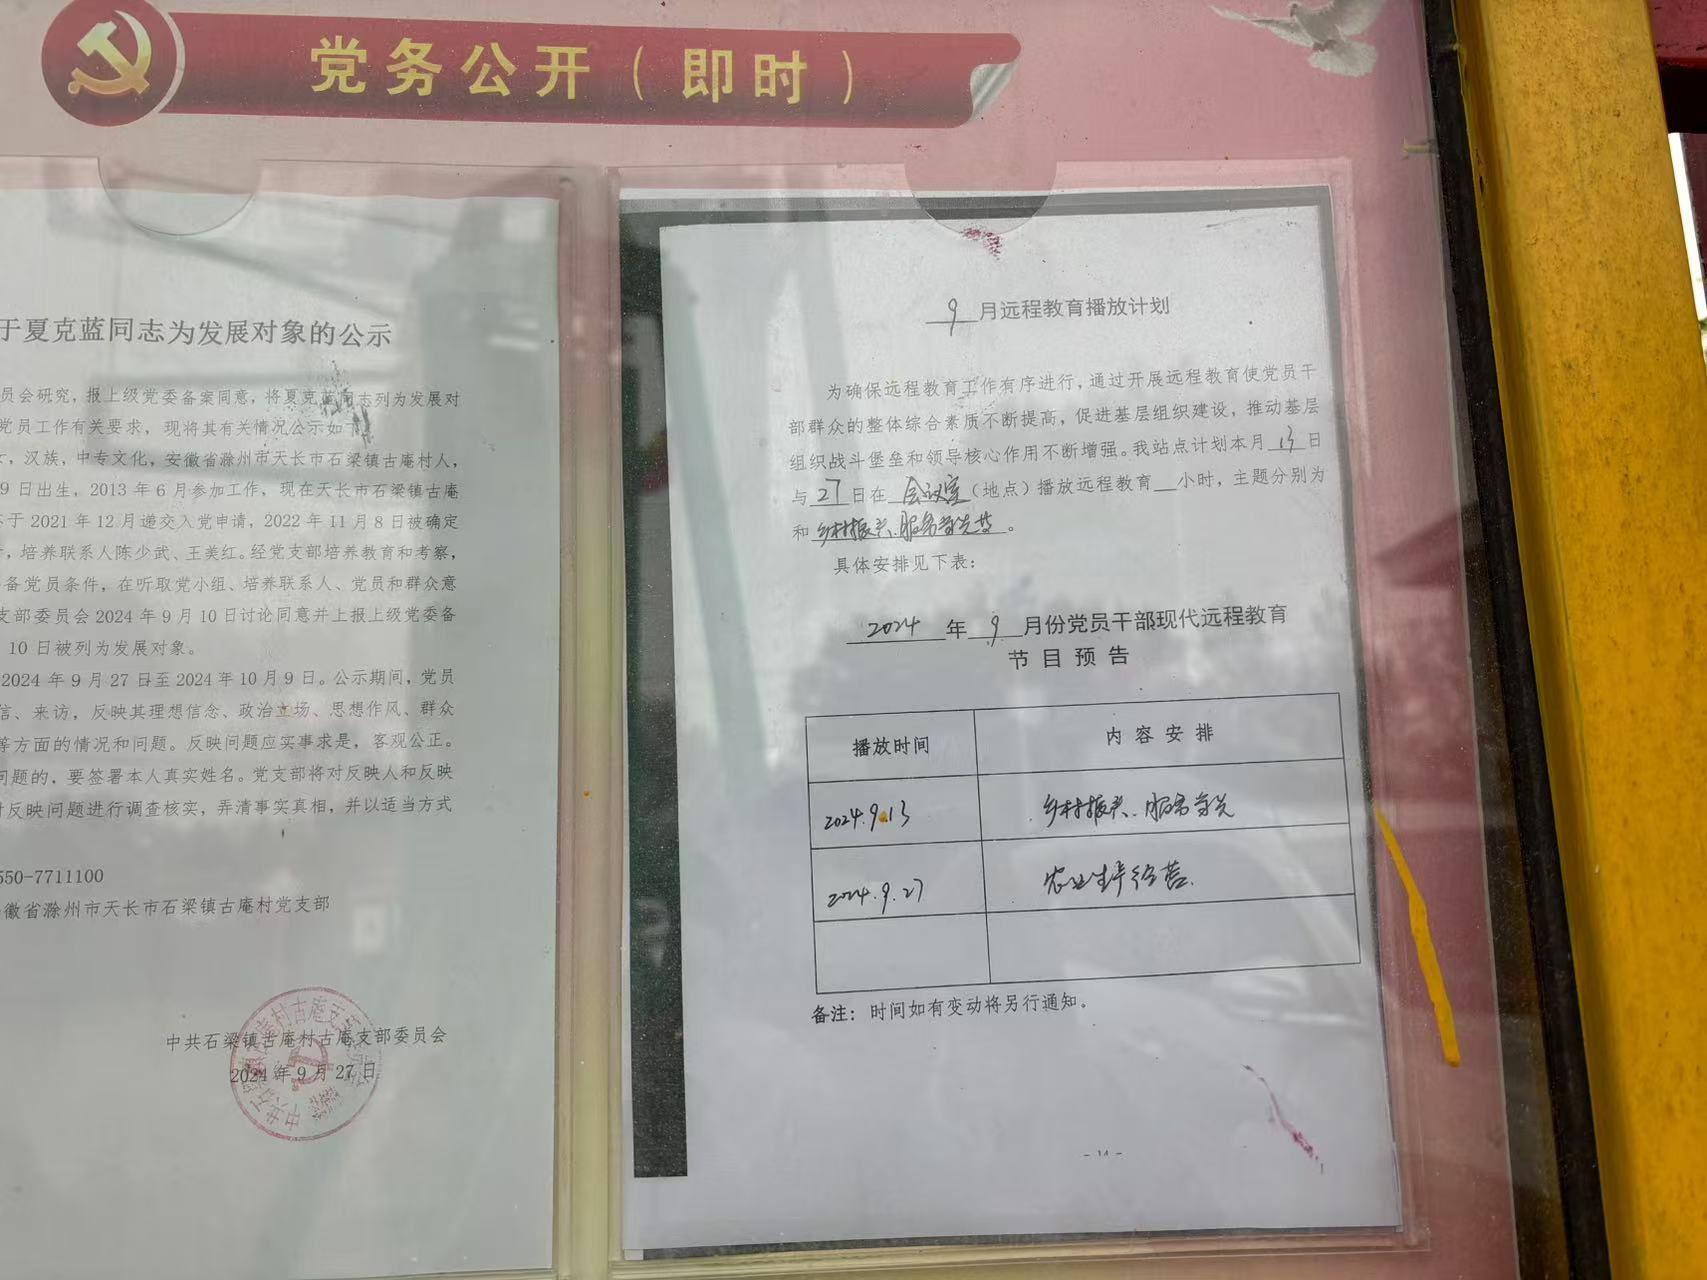 党务公开（即时）
于夏克蓝同志为发展对象的公示
员会研究，报上级党委备案同意，将夏克蓝同志列为发展对
党员工作有关要求，现将其有关情况公示如下
女，汉族，中专文化，安徽省滁州市天长市石梁镇古庵村人，
9日出生，2013年6月参加工作，现在天长市石梁镇古庵
于2021年12月递交入党申请，2022年11月8日被确定
，培养联系人陈少武、王美红。经党支部培养教育和考察，
备党员条件，在听取党小组、培养联系人、党员和群众意
支部委员会2024年9月10日讨论同意并上报上级党委备
10日被列为发展对象。
2024年9月27日至2024年10月9日。公示期间，党员
信、来访，反映其理想信念、政治立场、思想作风、群众
等方面的情况和问题。反映问题应实事求是，客观公正。
问题的，要签署本人真实姓名。党支部将对反映人和反映
对反映问题进行调查核实，弄清事实真相，并以适当方式
550-7711100
徽省滁州市天长市石梁镇古庵村党支部
中共石梁镇古庵村古庵支部委员会
2024年9月27日
9月远程教育播放计划
为确保远程教育工作有序进行，通过开展远程教育使党员干
部群众的整体综合素质不断提高，促进基层组织建设，推动基层
组织战斗堡垒和领导核心作用不断增强。我站点计划本月13日
与27日在会议室（地点）播放远程教育__小时，主题分别为
和乡村振兴、服务。
具体安排见下表：
2024年9月份党员干部现代远程教育
节目预告
播放时间 内容安排
2024.9.13 乡村振兴、服务
2024.9.27 农业生产经营.
备注：时间如有变动将另行通知。
- 14 -